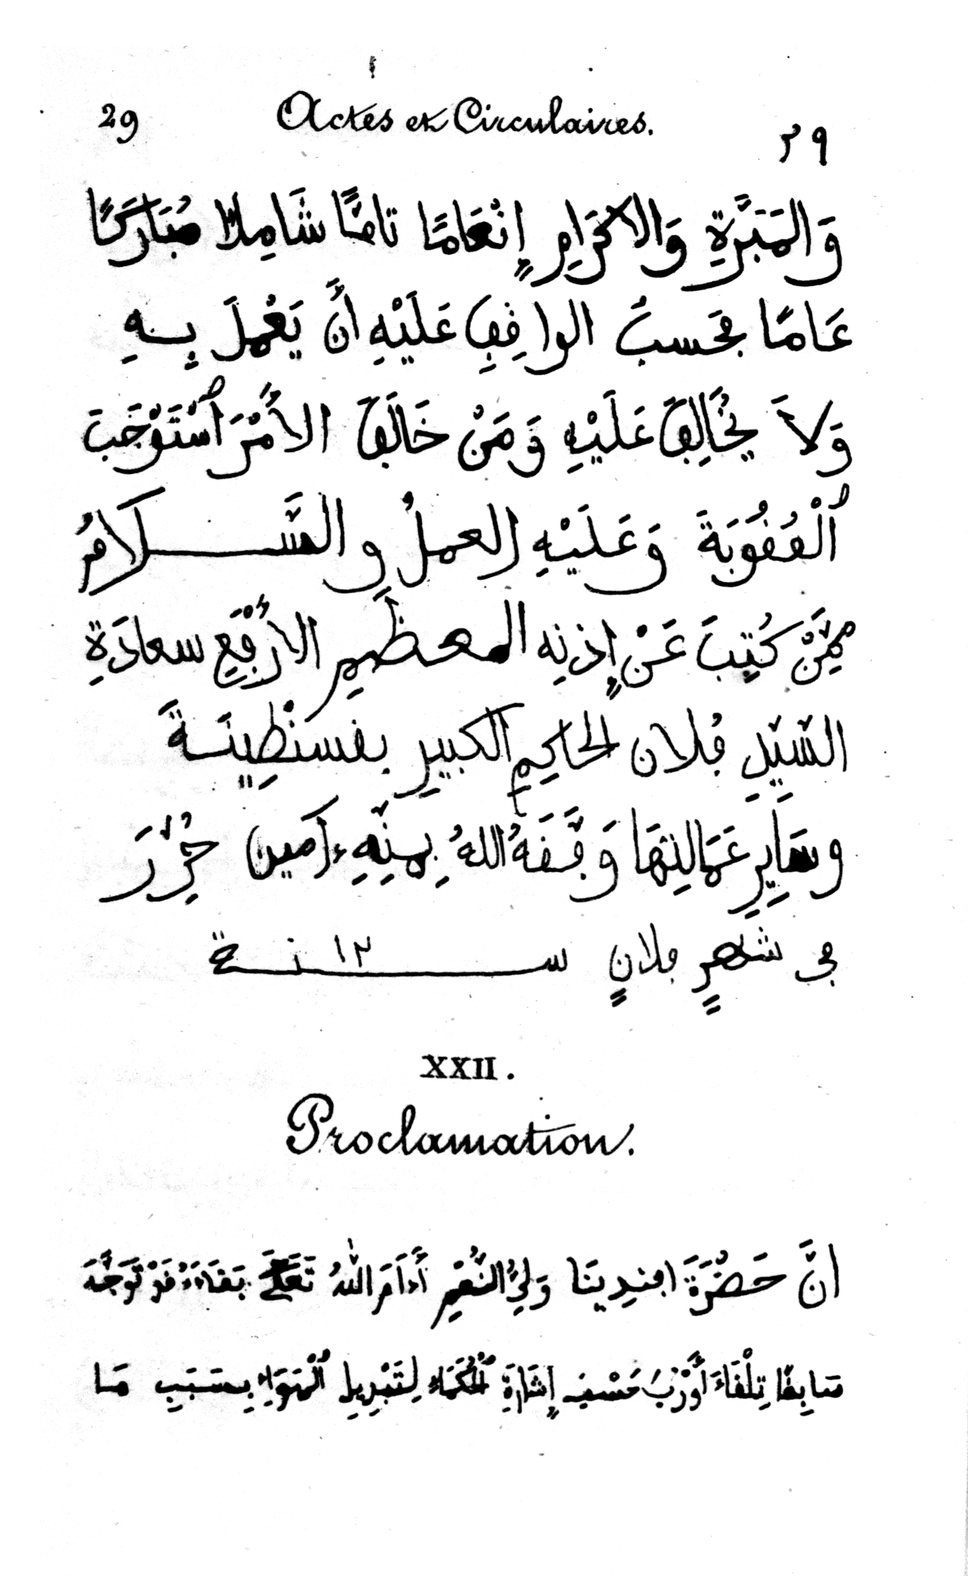 29 Actes et Circulaires. ٢٩
وَالمَبَرَّةِ وَالاكْرَامِ إِنْعَامًا تامًّا شَامِلًا مُبَارَكًا
عَامًا بحَسبُ الوافِفِ عَلَيْهِ أَنْ يَعْمَلَ بِهِ
وَلاَ يُخَالِفَ عَلَيْهِ وَمَنْ خَالَفَ الأَمْرَ ٱسْتَوْجَبَ
ٱلْعُفُوبَةَ وَعَلَيْهِ العملُ والسَّلَامُ
مِمَّنْ كُتِبَ عَنْ إِذنِه المعظَّمِ الأَرْبَعِ سعادَةِ
السَّيِّدِ فُلان الحَاكِمِ الكبيرِ بفسنْطِينَةَ
وسَايِرِ عَمَالَتِهَا وَفَّفَهُ اللهُ بِمنِّهِ ءَامين حُرِّرَ
في شهرٍ فلانٍ سنة ١٢
XXII.
Proclamation.
انَّ حَضْرَةَ افندِينَا وَلِيُّ النَّعَمِ أَدَامَ اللهُ تَعَالَى بَفَاءَهُ فَدْ تَوَجَّهَ
سَابِفًا تِلْفَاءَ أَوْرُبَ حَسْبَ إِشَارَةِ ٱلْحُكَمَاءِ لِتَبْدِيلِ ٱلْهَوَاءِ بِسَبَبِ مَا